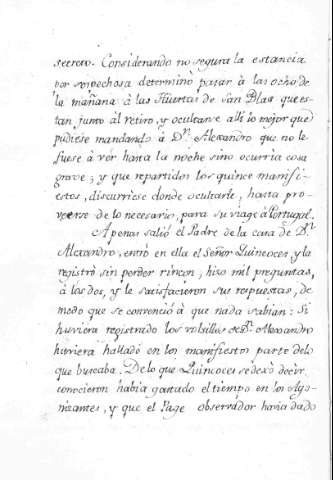 secreto. Considerando no segura la estancia
por sospechosa determinò pasar à las ocho de
la mañana à las Huertas de San Blas que es-
tan junto al retiro, y ocultarse alli lo mejor que
pudiese mandando à Dn. Alexandro que no le
fuese à vèr hasta la noche sino ocurria cosa
grave; y que repartidos los quince manifi-
estos, discurriese donde ocultarle, hasta pro-
veerse de lo necesario, para su viage à Portugal.
Apenas saliò el Padre de la casa de Dn.
Alexandro, entrò en ella el Señor Quincoces, y la
registrò sin perder rincon, hizo mil preguntas,
à los dos, y le satisfacieron sus respuestas, de
modo que se convenciò à que nada sabian: Si
huviera registrado los volsillos de Dn. Alexandro
huviera hallado en los manifiestos parte de lo
que buscaba. De lo que Quincoces se dexò decir
conocieron havia gastado el tiempo en los Ago-
nizantes, y que el Page observador havia dado